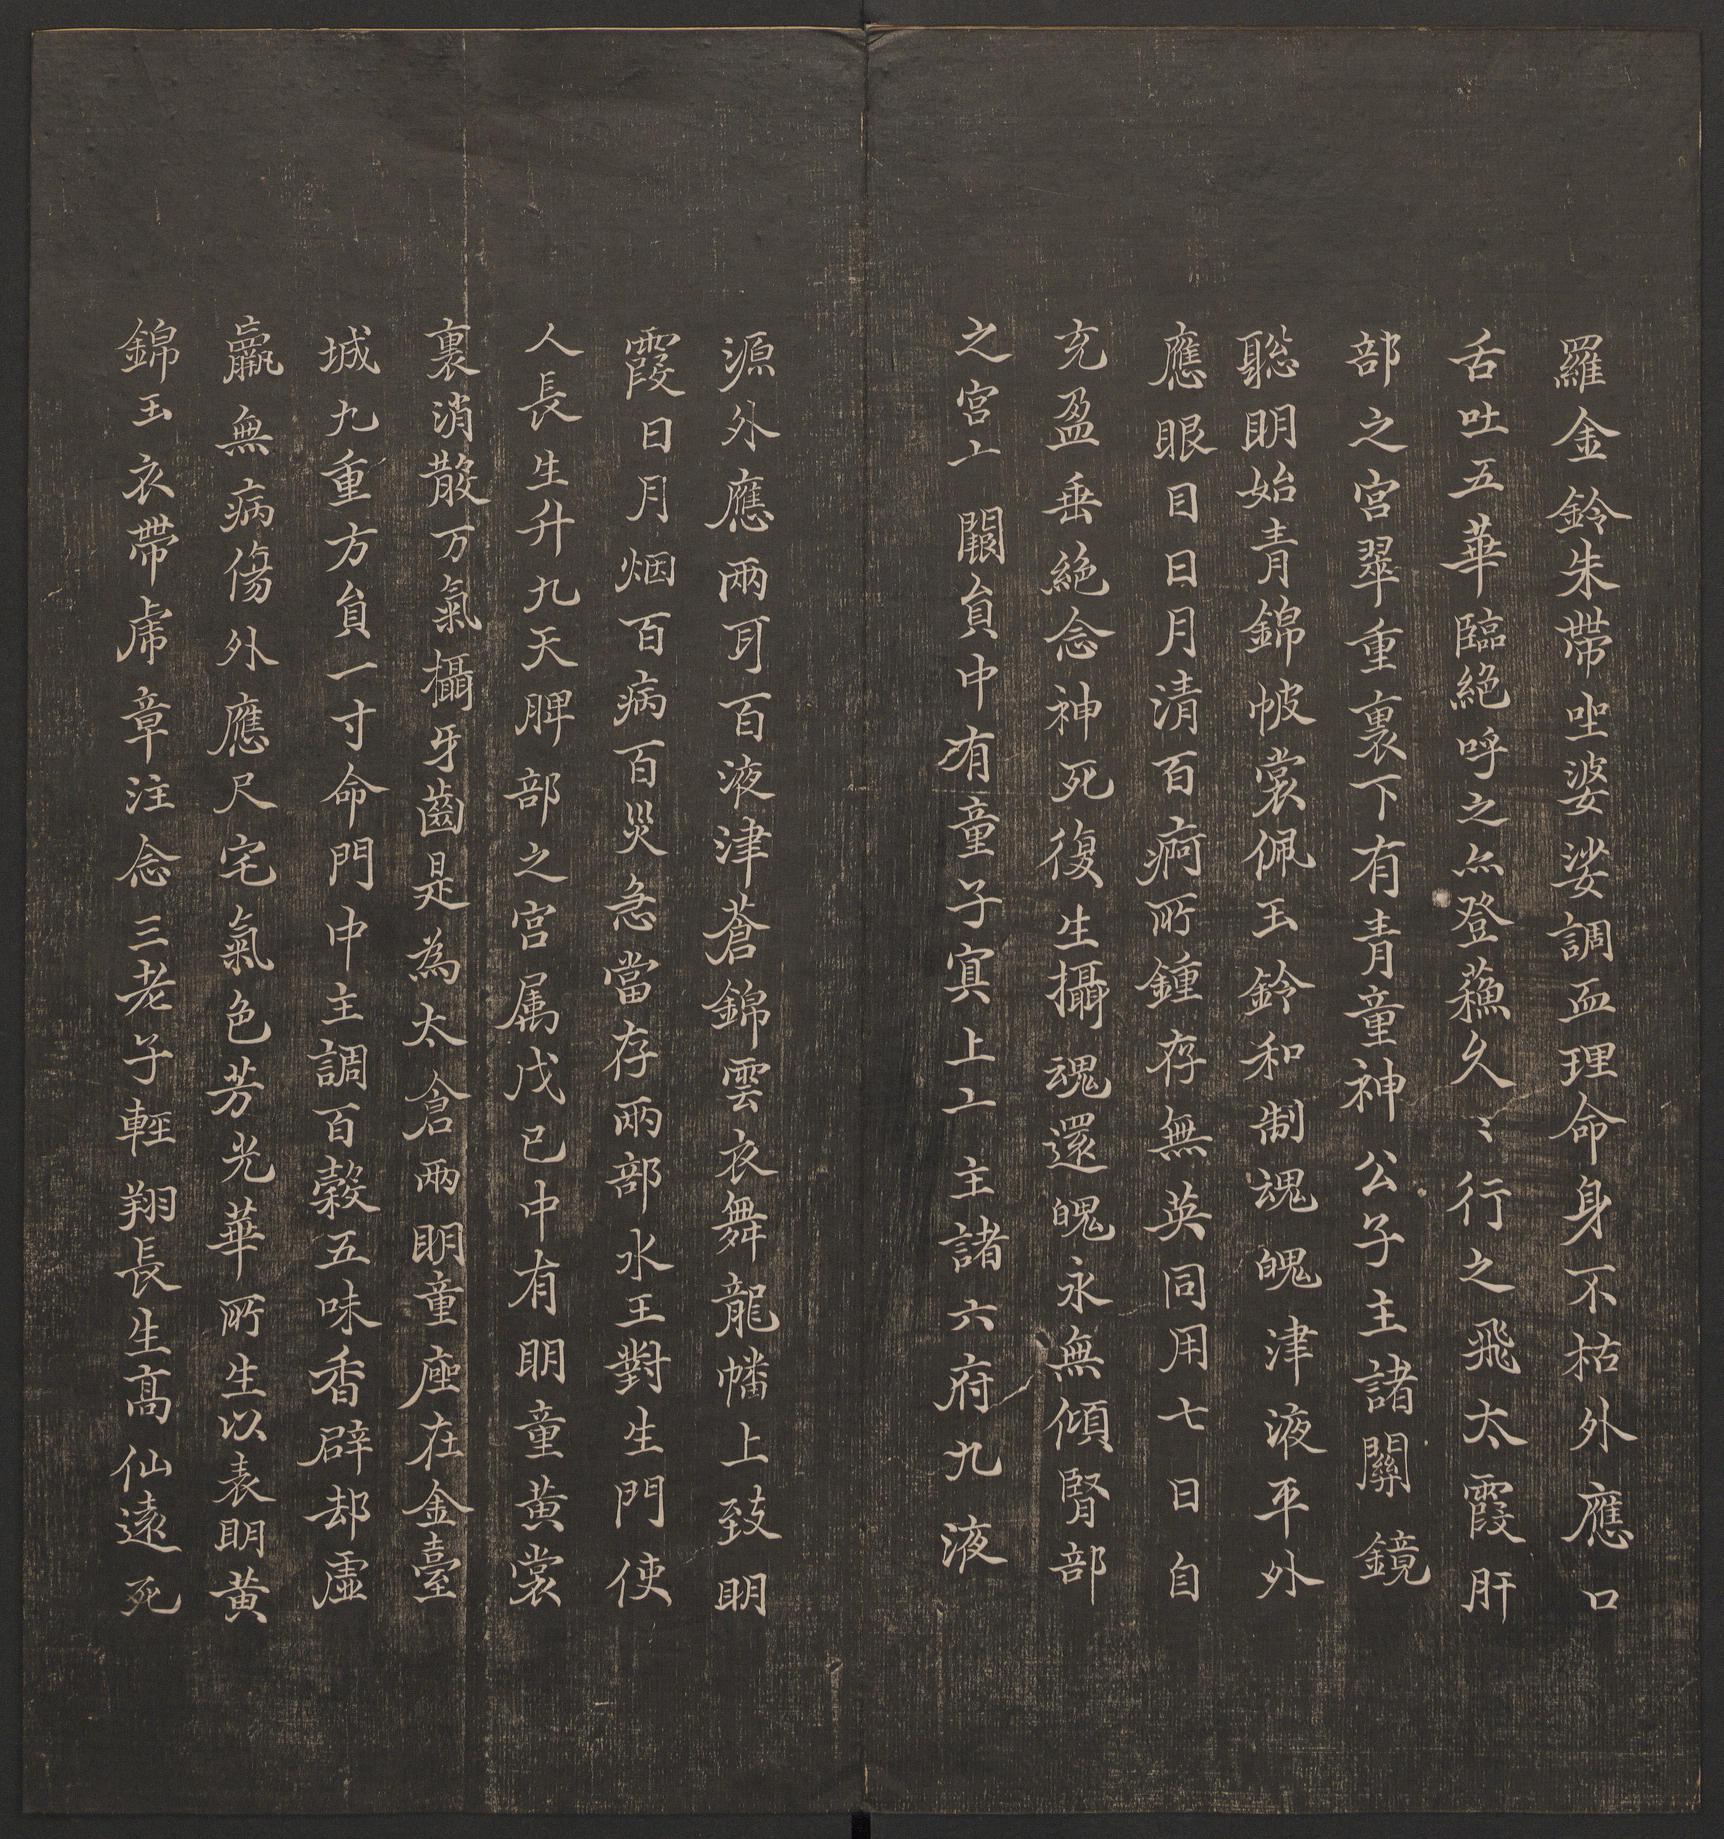 羅金鈴朱帶坐婆娑調血理命身不枯外應口
舌吐五華臨絕呼之亦登蘓久〻行之飛太霞肝
部之宮翠重裏下有青童神公子主諸關鏡
聡明始青錦帔裳佩玉鈴和制魂魄津液平外
應眼目日月清百痾所鍾存無英同用七日自
充盈垂絕念神死復生攝魂還魄永無傾腎部
之宮亠闕貟中有童子寘上亠主諸六府九液
源外應兩耳百液津蒼錦雲衣舞龍幡上致明
霞日月烟百病百災急當存兩部水王對生門使
人長生升九天脾部之宮属戊己中有明童黄裳
裏消散万氣攝牙齒是為太倉兩明童座在金臺
城九重方貟一寸命門中主調百榖五味香辟却虛
羸無病傷外應尺宅氣色芳光華所生以表明黄
錦玉衣帶虎章注念三老子輕翔長生髙仙遠死